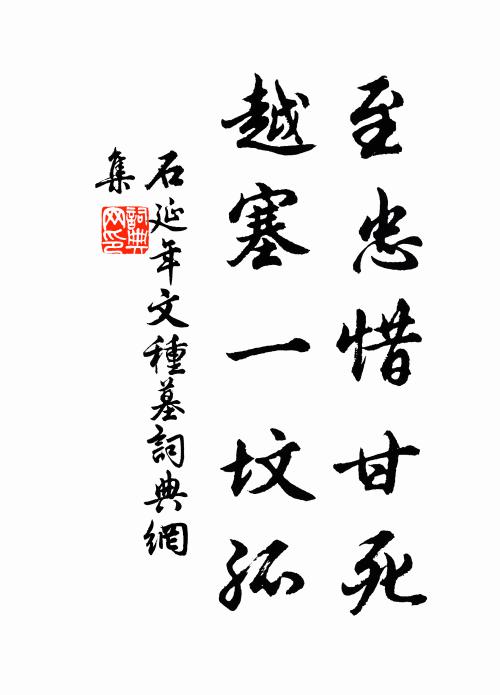 至忠惜甘死
越塞一坟孤
石延年文種墓詞典網
集
詞典
网印